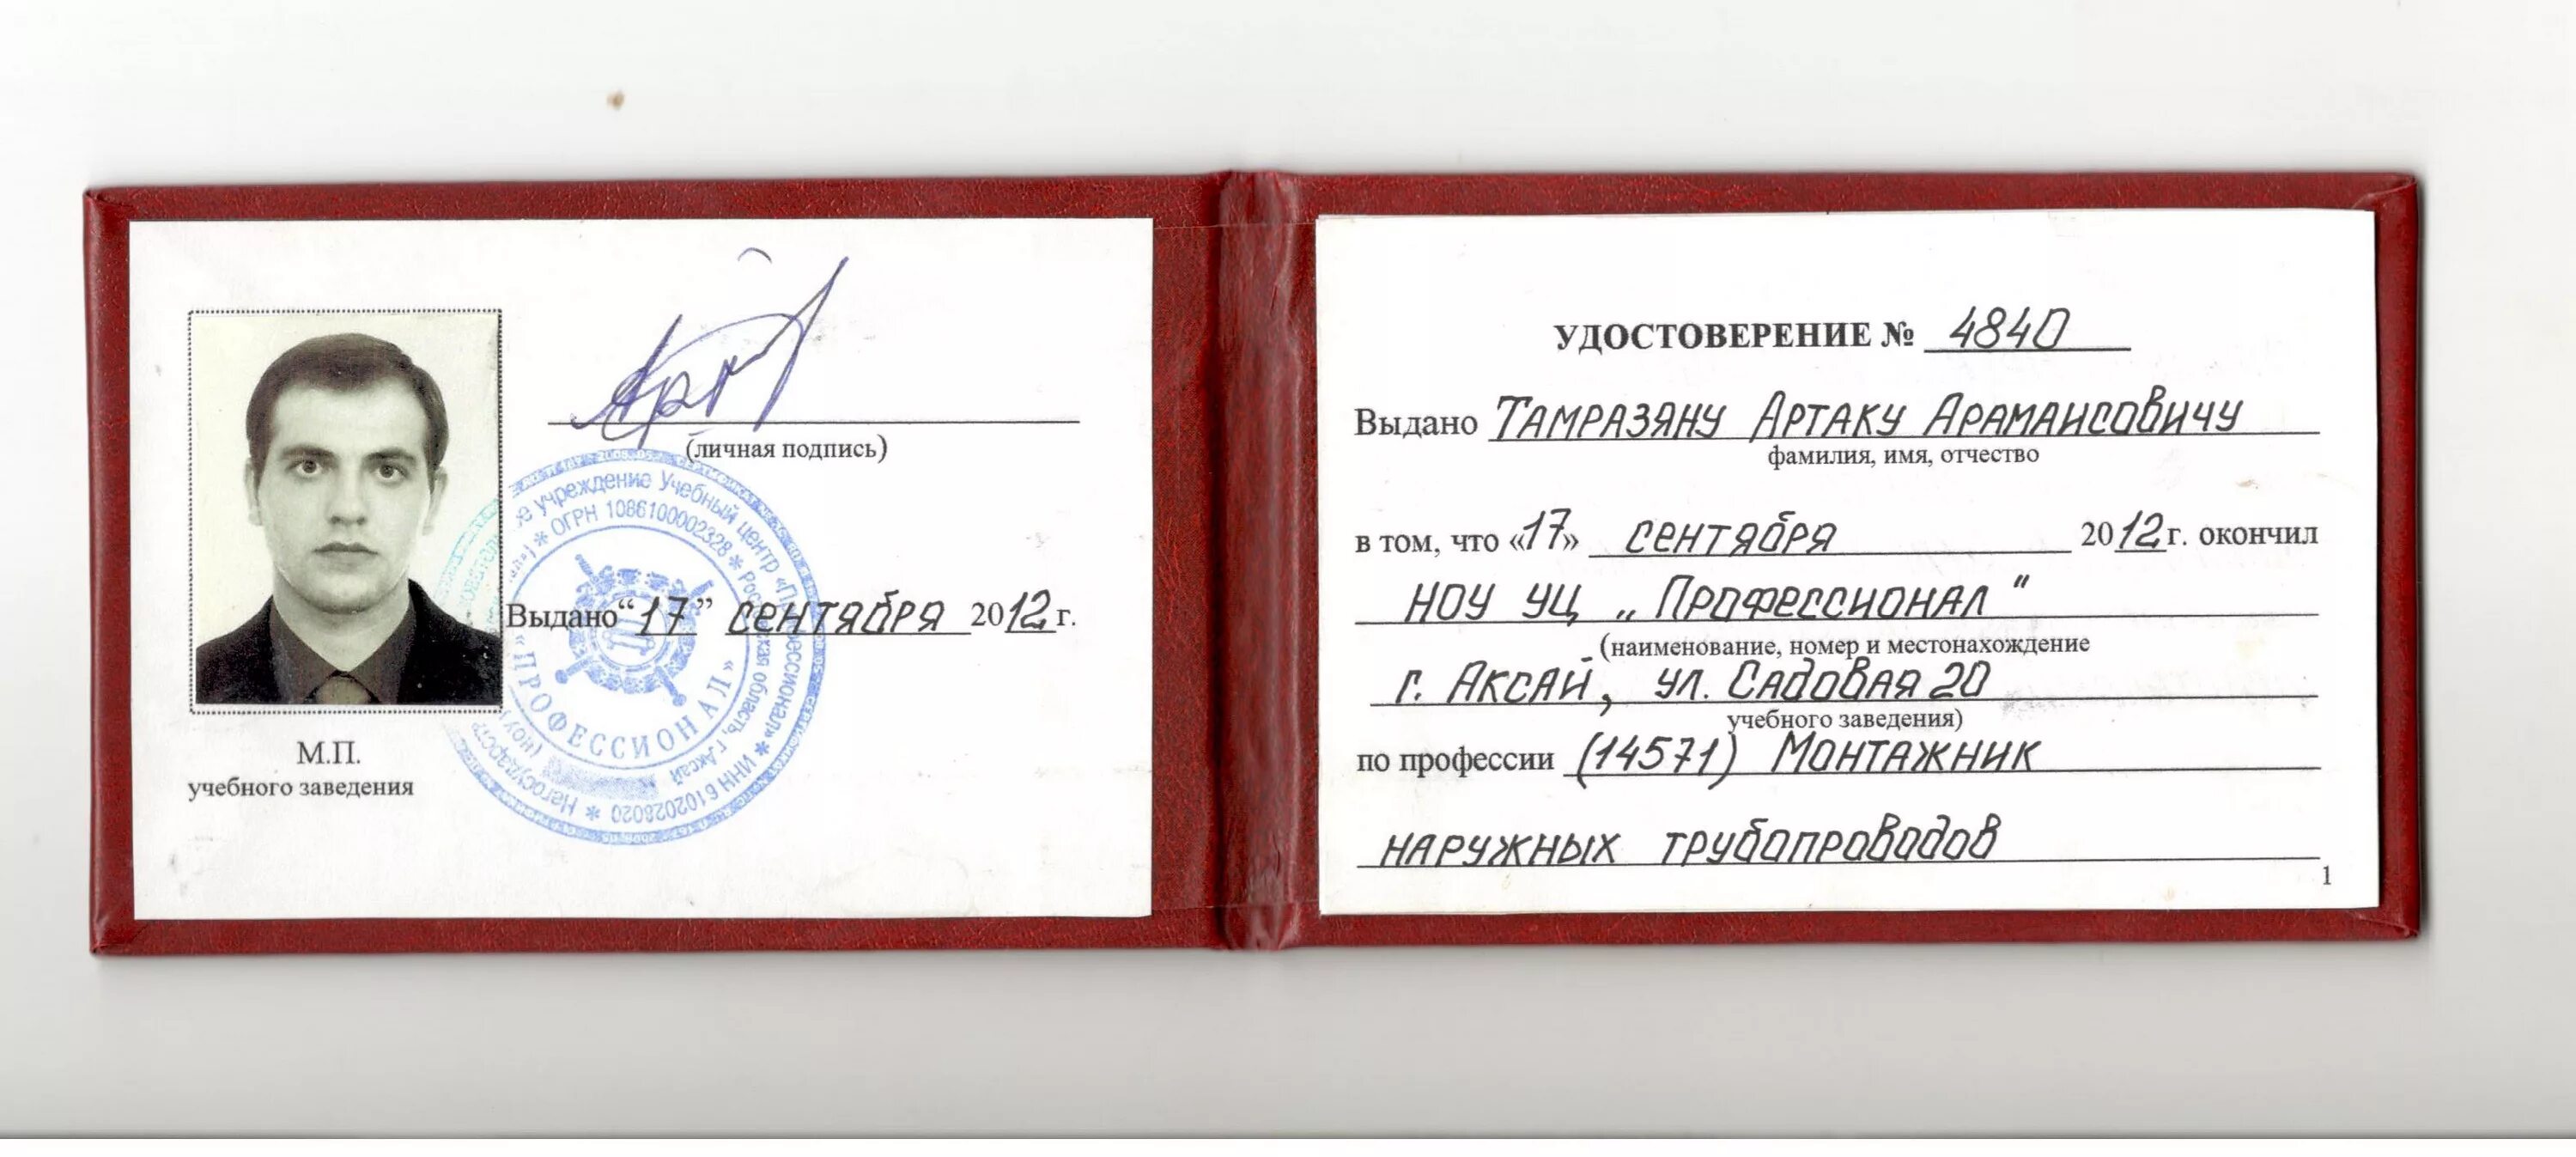 (личная подпись)
Выдано “17” сентября 2012 г.
М.П.
учебного заведения
учреждение Учебный центр «Профессионал» * ИНН 6102028020 *
* ОГРН 1086100002328 * Ростовская область, г. Аксай
«ПРОФЕССИОНАЛ»
УДОСТОВЕРЕНИЕ № 4840
Выдано Тамразяну Артаку Арамаисовичу
фамилия, имя, отчество
в том, что «17» сентября 2012 г. окончил
НОУ УЦ „Профессионал"
(наименование, номер и местонахождение
г. Аксай, ул. Садовая 20
учебного заведения)
по профессии (14571) Монтажник
наружных трубопроводов
1